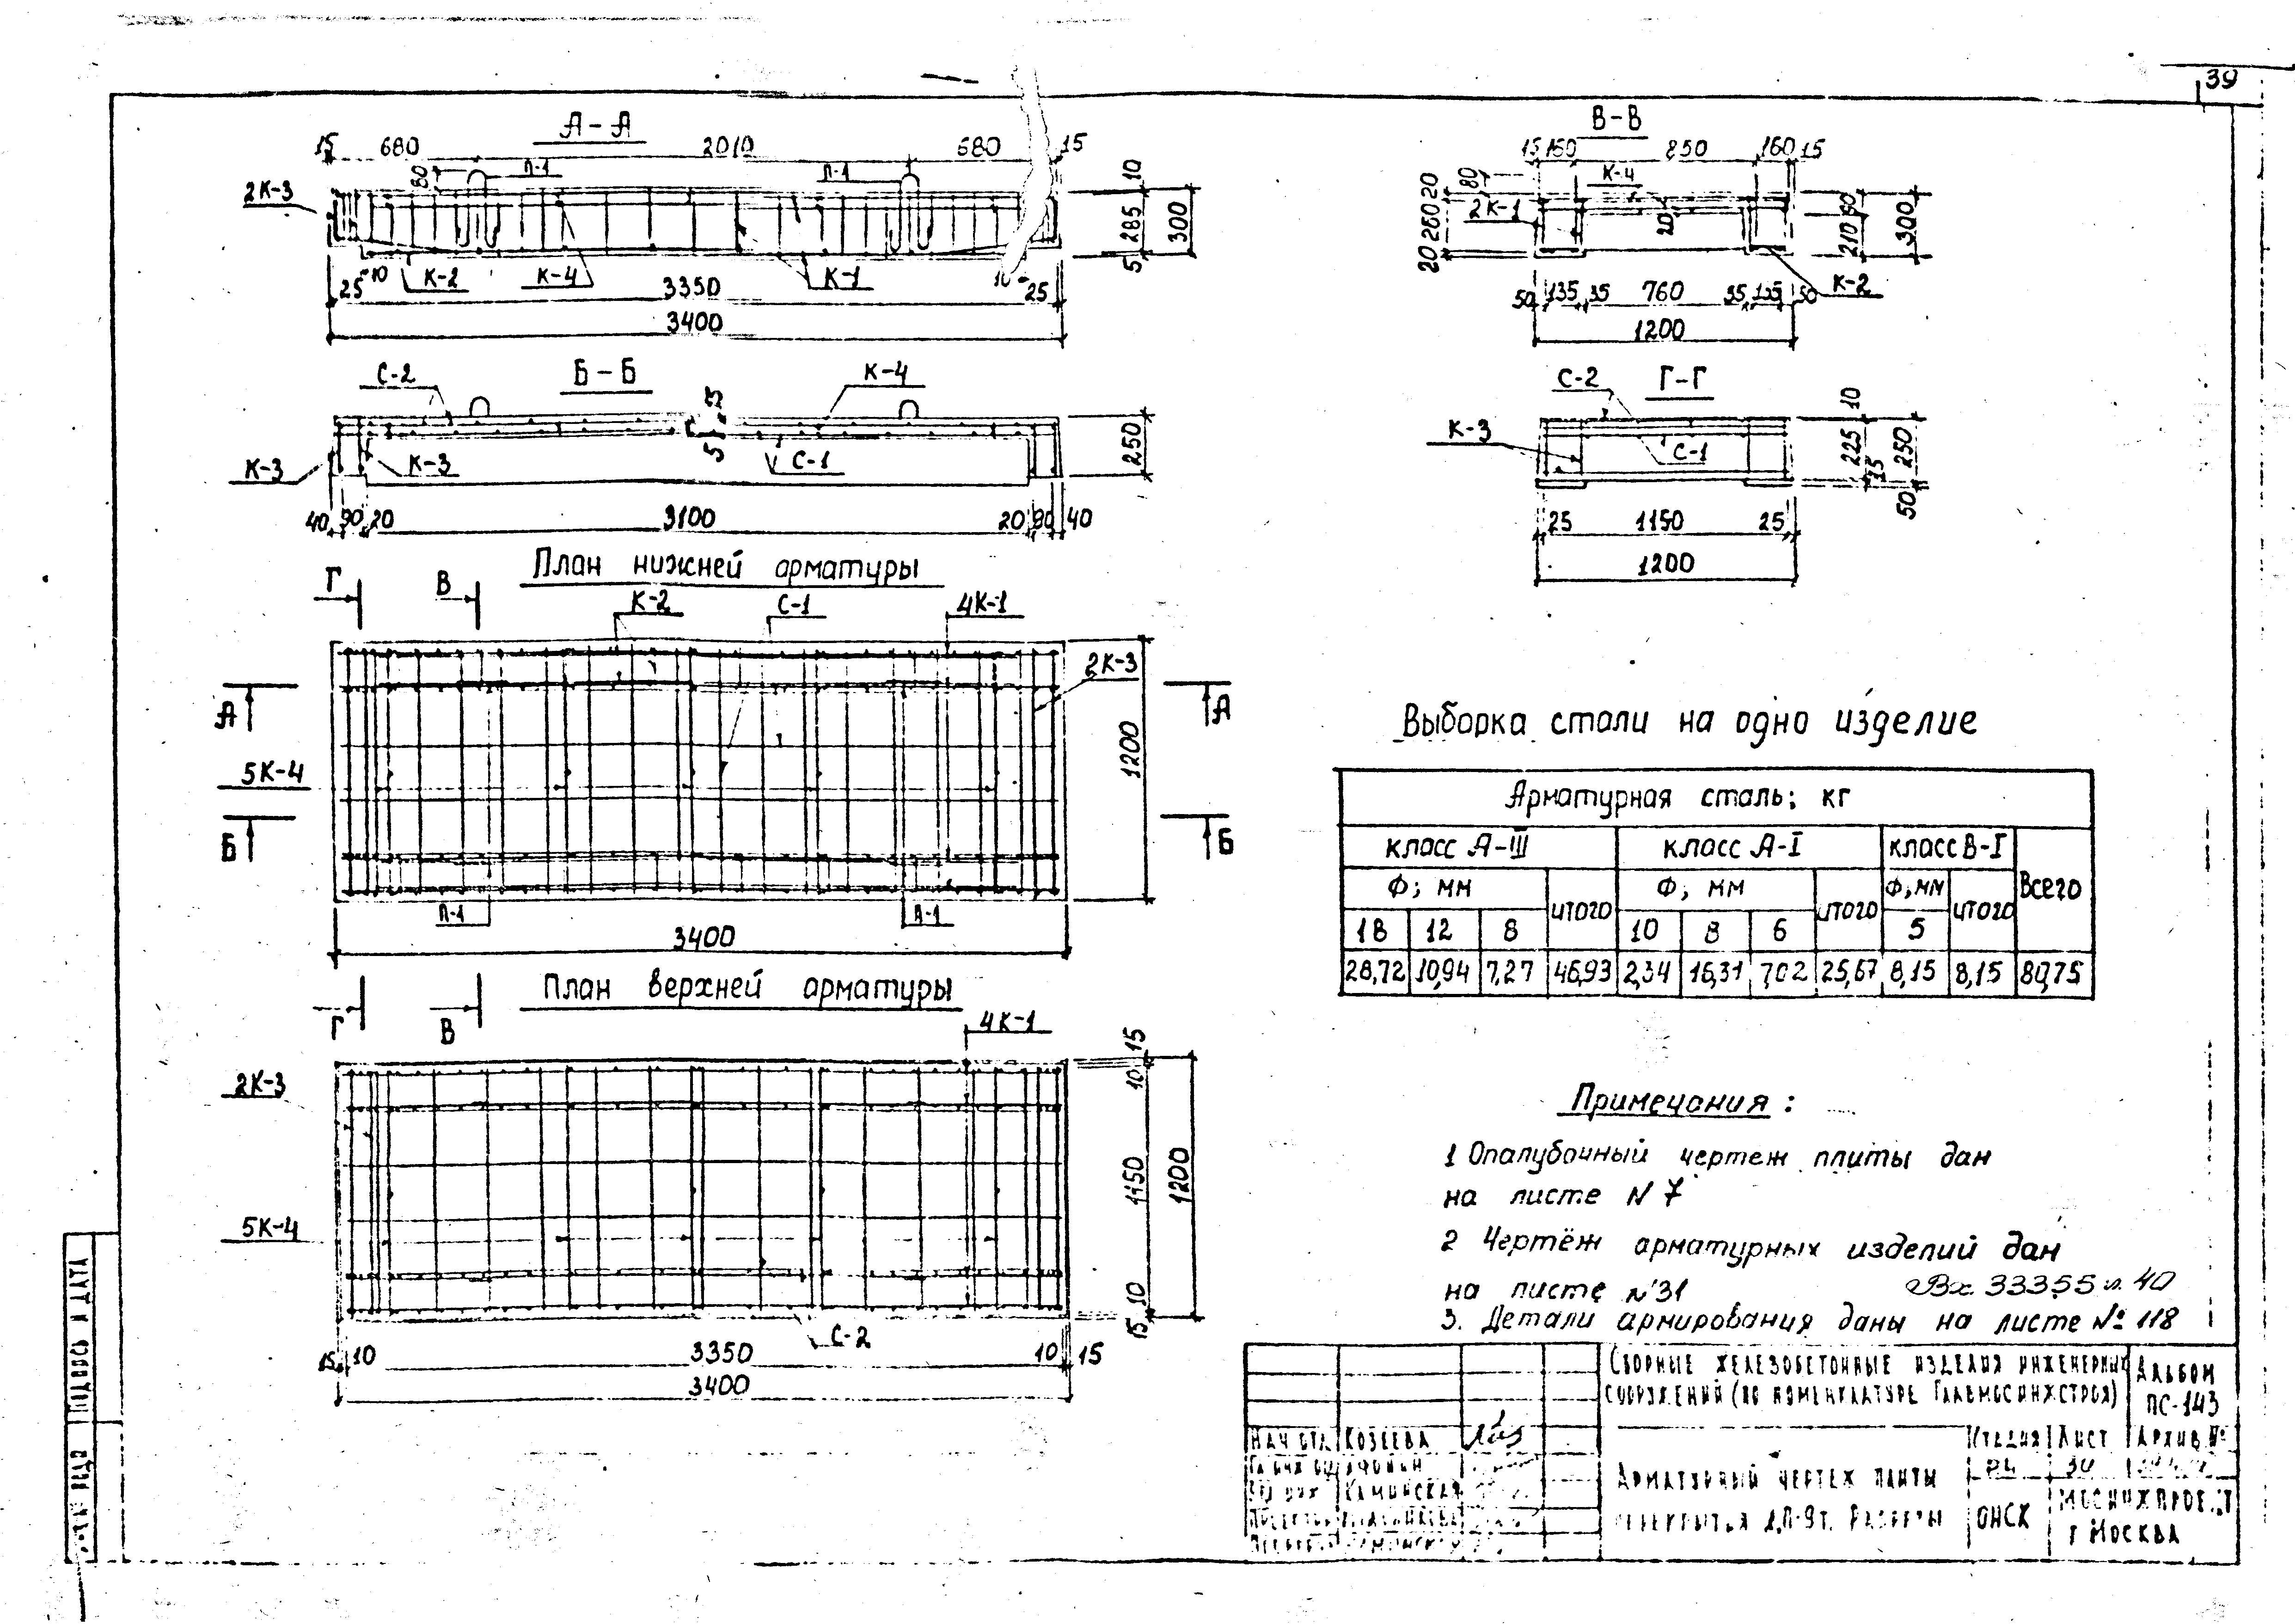 39
А-А
15 680 2010 680 15
80 П-1 П-1 10
2К-3 285 300
5
25 10 К-2 К-4 3350 К-1 10 25
3400
В-В
15 160 850 160 15
К-4
80 20
2К-1 260 20 60 210 300
20
50 135 35 760 35 135 50
К-2
1200
С-2 Б-Б К-4
15
5
К-3 К-3 С-1 250
40 90 20 3100 20 90 40
С-2 Г-Г
10
К-3 С-1 225 250
15
50
25 1150 25
1200
План нижней арматуры
Г В К-2 С-1 4К-1
2К-3
А А
5К-4 1200
Б Б
П-1 П-1
3400
План верхней арматуры
Г В 4К-1
15
2К-3 10
1150 1200
5К-4
10
15
С-2
15 10 3350 10 15
3400
Выборка стали на одно изделие
Арматурная сталь; кг
класс А-III класс А-I класс В-I Всего
Ф; мм итого Ф; мм итого Ф; мм итого
18 12 8 10 8 6 5
28,72 10,94 7,27 46,93 2,34 16,31 7,02 25,67 8,15 8,15 80,75
Примечания:
1 Опалубочный чертеж плиты дан
на листе N 7
2 Чертёж арматурных изделий дан
на листе N 31
Вх. 33355 л. 40
3. Детали армирования даны на листе № 118
Сборные железобетонные изделия инженерных
сооружений (по номенклатуре Главмосинжстроя)
Альбом
ПС-143
Нач отд Козеева
Стадия Лист Архив №
Каминская
Арматурный чертеж плиты
ОНСК
Мосинжпроект
г Москва
Подпись и дата